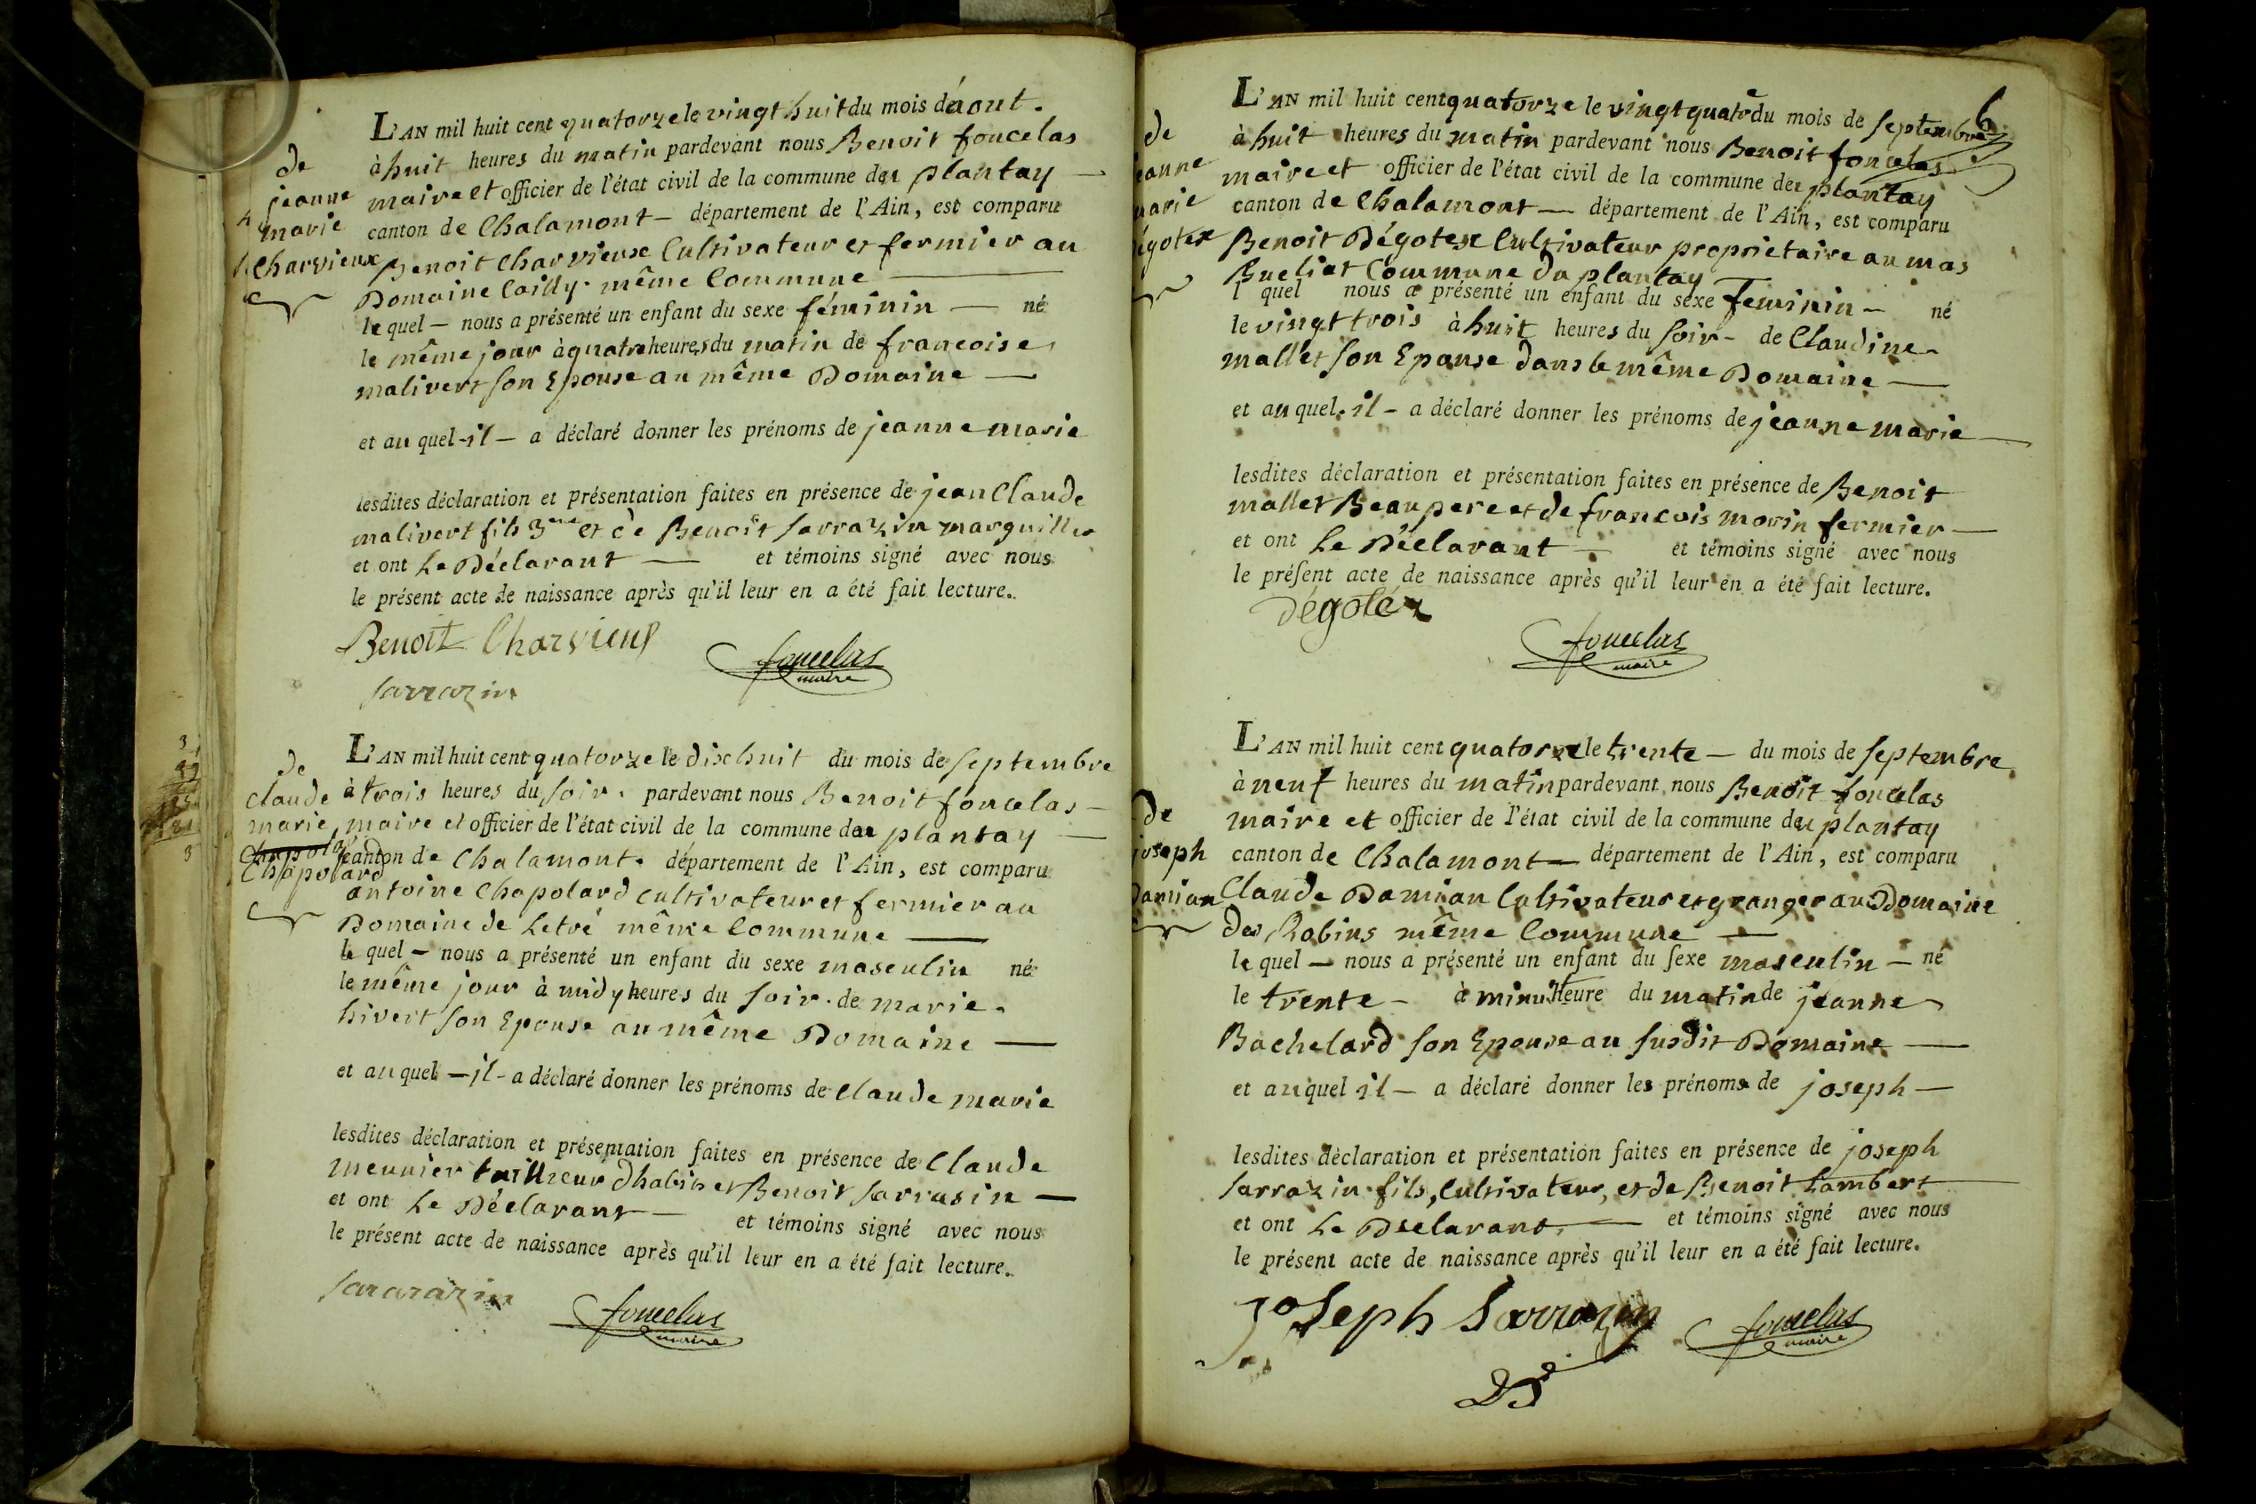 L'AN mil huit cent quatorze le vingt huit du mois d'aout.
à huit heures du matin pardevant nous Benoit foncelas
maire et officier de l'état civil de la commune du plantay
canton de Chalamont — département de l'Ain, est comparu
Benoit Charvieux Cultivateur et fermier au
Domaine Cailly même Commune —
lequel — nous a présenté un enfant du sexe féminin — né
le même jour à quatre heures du matin de francoise
malivert son Epouse au même Domaine —
et au quel - il — a déclaré donner les prénoms de jeanne marie
lesdites déclaration et présentation faites en présence de jean Claude
malivert fils 3me et de Benoit Sarrazin marguiller
et ont Le Déclarant — et témoins signé avec nous
le présent acte de naissance après qu'il leur en a été fait lecture.
Benoit Charvieux
foncelas
maire
Sarrazin
de
jeanne
marie
Charvieux
L'AN mil huit cent quatorze le dixhuit du mois de Septembre
à trois heures du soir. pardevant nous Benoit foncelas —
maire et officier de l'état civil de la commune du plantay —
canton de Chalamont. département de l'Ain, est comparu
antoine Chapolard cultivateur et fermier au
Domaine de Letré même Commune —
le quel — nous a présenté un enfant du sexe masculin né
le même jour à midy heures du soir. de marie
hivert son Epouse au même Domaine —
et au quel — il - a déclaré donner les prénoms de Claude marie
lesdites déclaration et présentation faites en présence de Claude
meunier tailleur dhabits et Benoit Sarrasin —
et ont Le Déclarant — et témoins signé avec nous
le présent acte de naissance après qu'il leur en a été fait lecture.
Sararazin
foncelas
maire
de
claude
marie
Chapola
Chapolard
6
L'AN mil huit cent quatorze le vingt quatre du mois de Septembre
à huit heures du matin pardevant nous Benoit foncelas
maire et officier de l'état civil de la commune du plantay
canton de Chalamont — département de l'Ain, est comparu
Benoit Dégotex Cultivateur propriétaire au mas
Bueliat Commune du plantay
l quel nous a présenté un enfant du sexe Feminin — né
le vingt trois à huit heures du soir - de Claudine
mallet son Epouse dans le même Domaine —
et au quel. il - a déclaré donner les prénoms de jeanne marie —
lesdites déclaration et présentation faites en présence de Benoit
mallet Beaupere et de francois morin fermier —
et ont Le Déclarant — et témoins signé avec nous
le présent acte de naissance après qu'il leur en a été fait lecture.
Dégoléx
foncelas
maire
de
jeanne
marie
Dégotex
L'AN mil huit cent quatorze le trente — du mois de Septembre
à neuf heures du matin pardevant nous Benoit foncelas
maire et officier de l'état civil de la commune du plantay
canton de Chalamont — département de l'Ain, est comparu
Claude Damian Cultivateur et granger au Domaine
des Robins même Commune —
le quel — nous a présenté un enfant du sexe masculin — né
le trente - à minuit heure du matin de jeanne
Bachelard son Epouse au susdit Domaine —
et auquel il — a déclaré donner les prénoms de joseph —
lesdites déclaration et présentation faites en présence de joseph
Sarrazin fils, Cultivateur, et de Benoit Lambert
et ont Le Declarant. — et témoins signé avec nous
le présent acte de naissance après qu'il leur en a été fait lecture.
Joseph Sarrazin
foncelas
maire
de
joseph
Damian